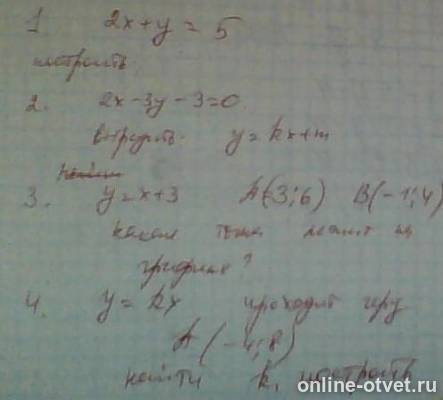 1 2x+y=5
построить
2. 2x-3y-3=0
выразить. y=kx+m
3. y=x+3 A(3;6) B(-1;4)
какая точка лежит на
графике?
4. y=kx проходит через
A(-4;8)
найти k, построить
online-otvet.ru